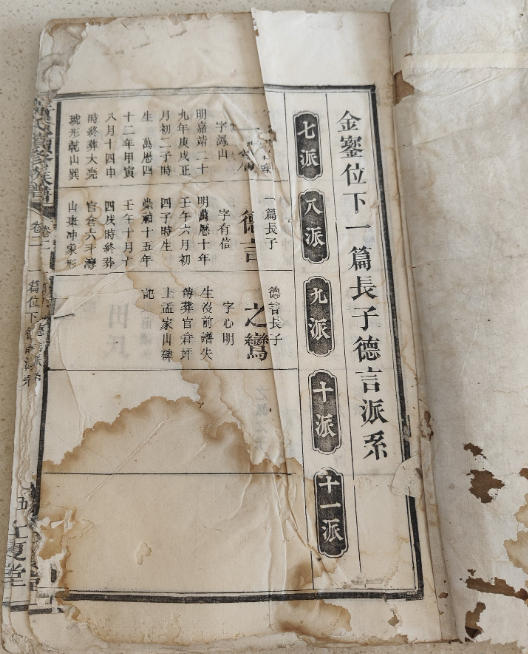 金鋆位下一篇長子德言派系
七派
八派
九派
十派
十一派
一篇
字鳳山
明嘉靖二十
九年庚戌正
月初二子時
生 萬厯四
十二年甲寅
八月十四申
時終葬大堯
琥形乾山巽
一篇長子
德言
字有信
明萬曆十年
壬午六月初
四子時生
崇禎十五年
壬午十月十
四戌時終葬
官倉六斗灣
山棗冲象形
德言長子
之鸞
字心明
生没前譜失
傳葬官倉坪
上孟家山碑
記
族譜
卷二
篇位下
五
江夏堂